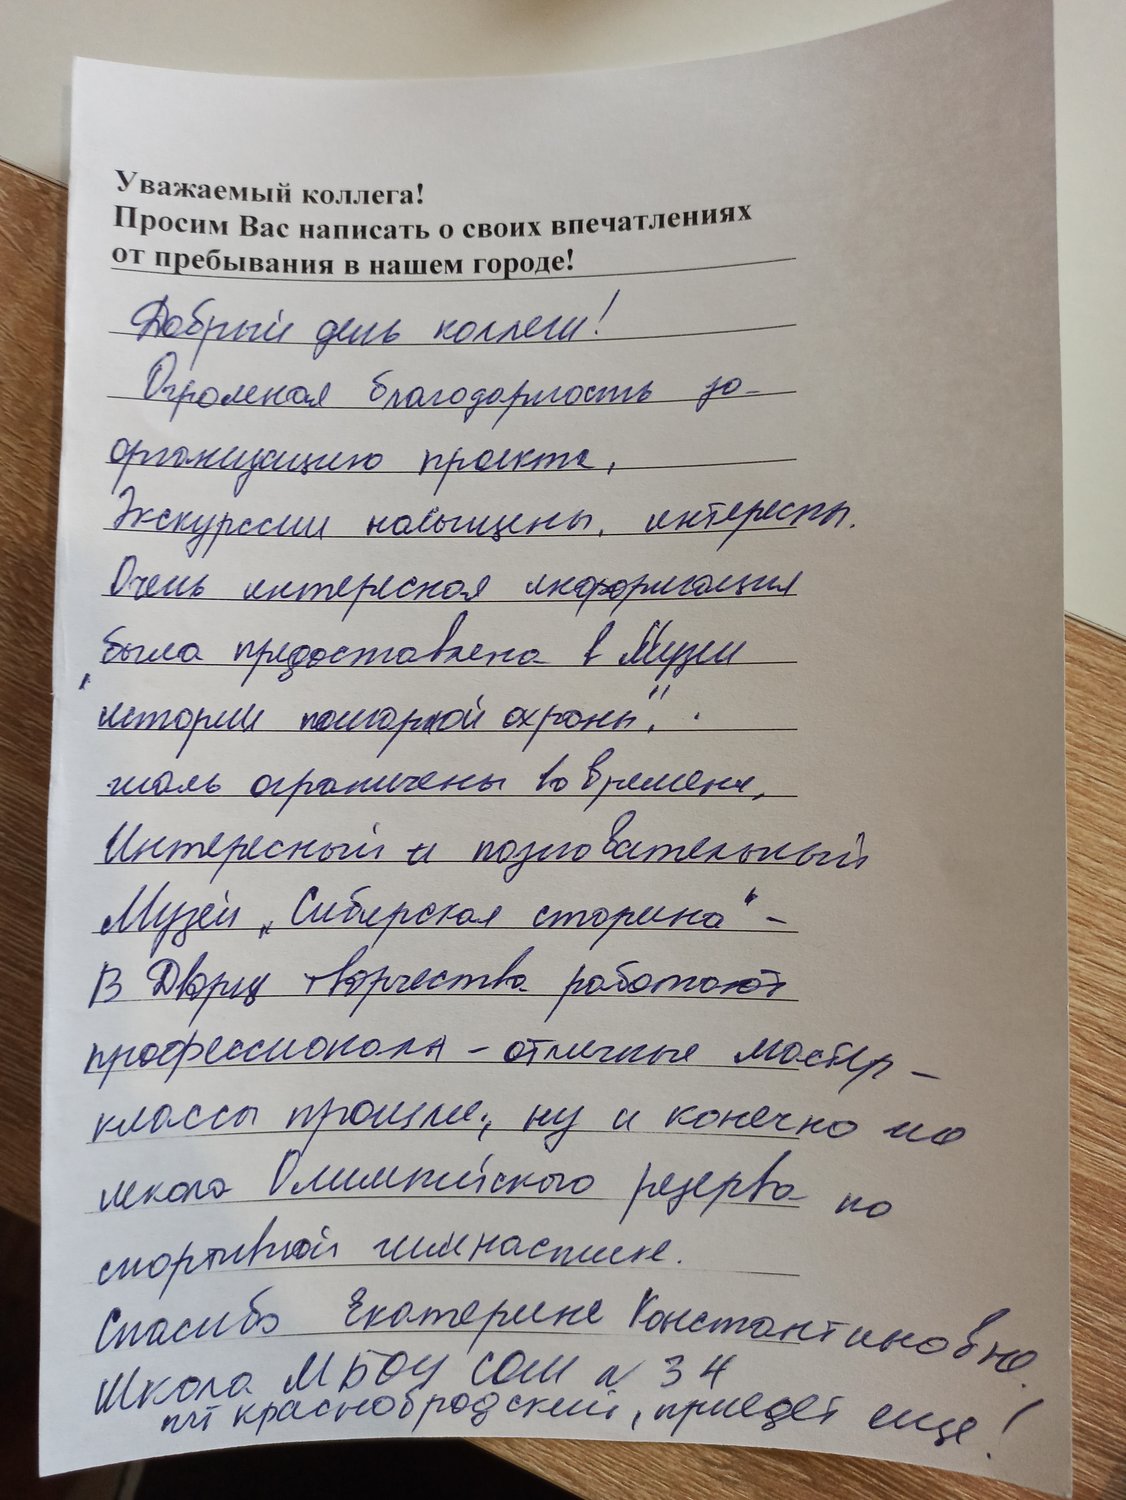 Уважаемый коллега!
Просим Вас написать о своих впечатлениях
от пребывания в нашем городе!
Добрый день коллеги!
Огромная благодарность за-
организацию проекта,
Экскурсии насыщены, интересны.
Очень интересная информация
была предоставлена в Музеи
"истории пожарной охраны".
жаль ограничены во времени,
Интересный и познавательный
Музей „Сибирская старина" -
В Дворце творчества работают
профессионалы - отличные мастер -
классы прошли, ну и конечно же
школа Олимпийского резерва по
спортивной гимнастике.
Спасибо Екатерине Константиновне.
Школа МБОУ СОШ N 34
пгт краснобродский, приедет еще!